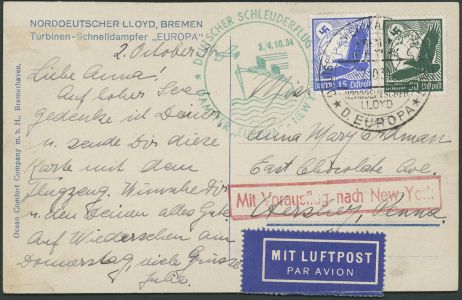 NORDDEUTSCHER LLOYD, BREMEN
Turbinen-Schnelldampfer „EUROPA“
2. October 34
Liebe Anna!
Auf hoher See
gedenke ich Deiner
u. sende Dir diese
Karte mit dem
Flugzeug. Wünsche Dir
u. den Deinen alles Gute
Auf Wiedersehen am
Donnerstag, viele Grüsse
Julie.
Ocean Comfort Company m. b. H., Bremerhaven.
DEUTSCHER SCHLEUDERFLUG
3./4.10.34
DAMPFER "EUROPA" - NEW Y
15 Luftpost
50 Luftpost
NORDDEUTSCHER
LLOYD
D. EUROPA
Miss
Anna Mary Erdman
East Chocolate Ave,
Hershey, Penna.
Mit Vorausflug nach New York
MIT LUFTPOST
PAR AVION